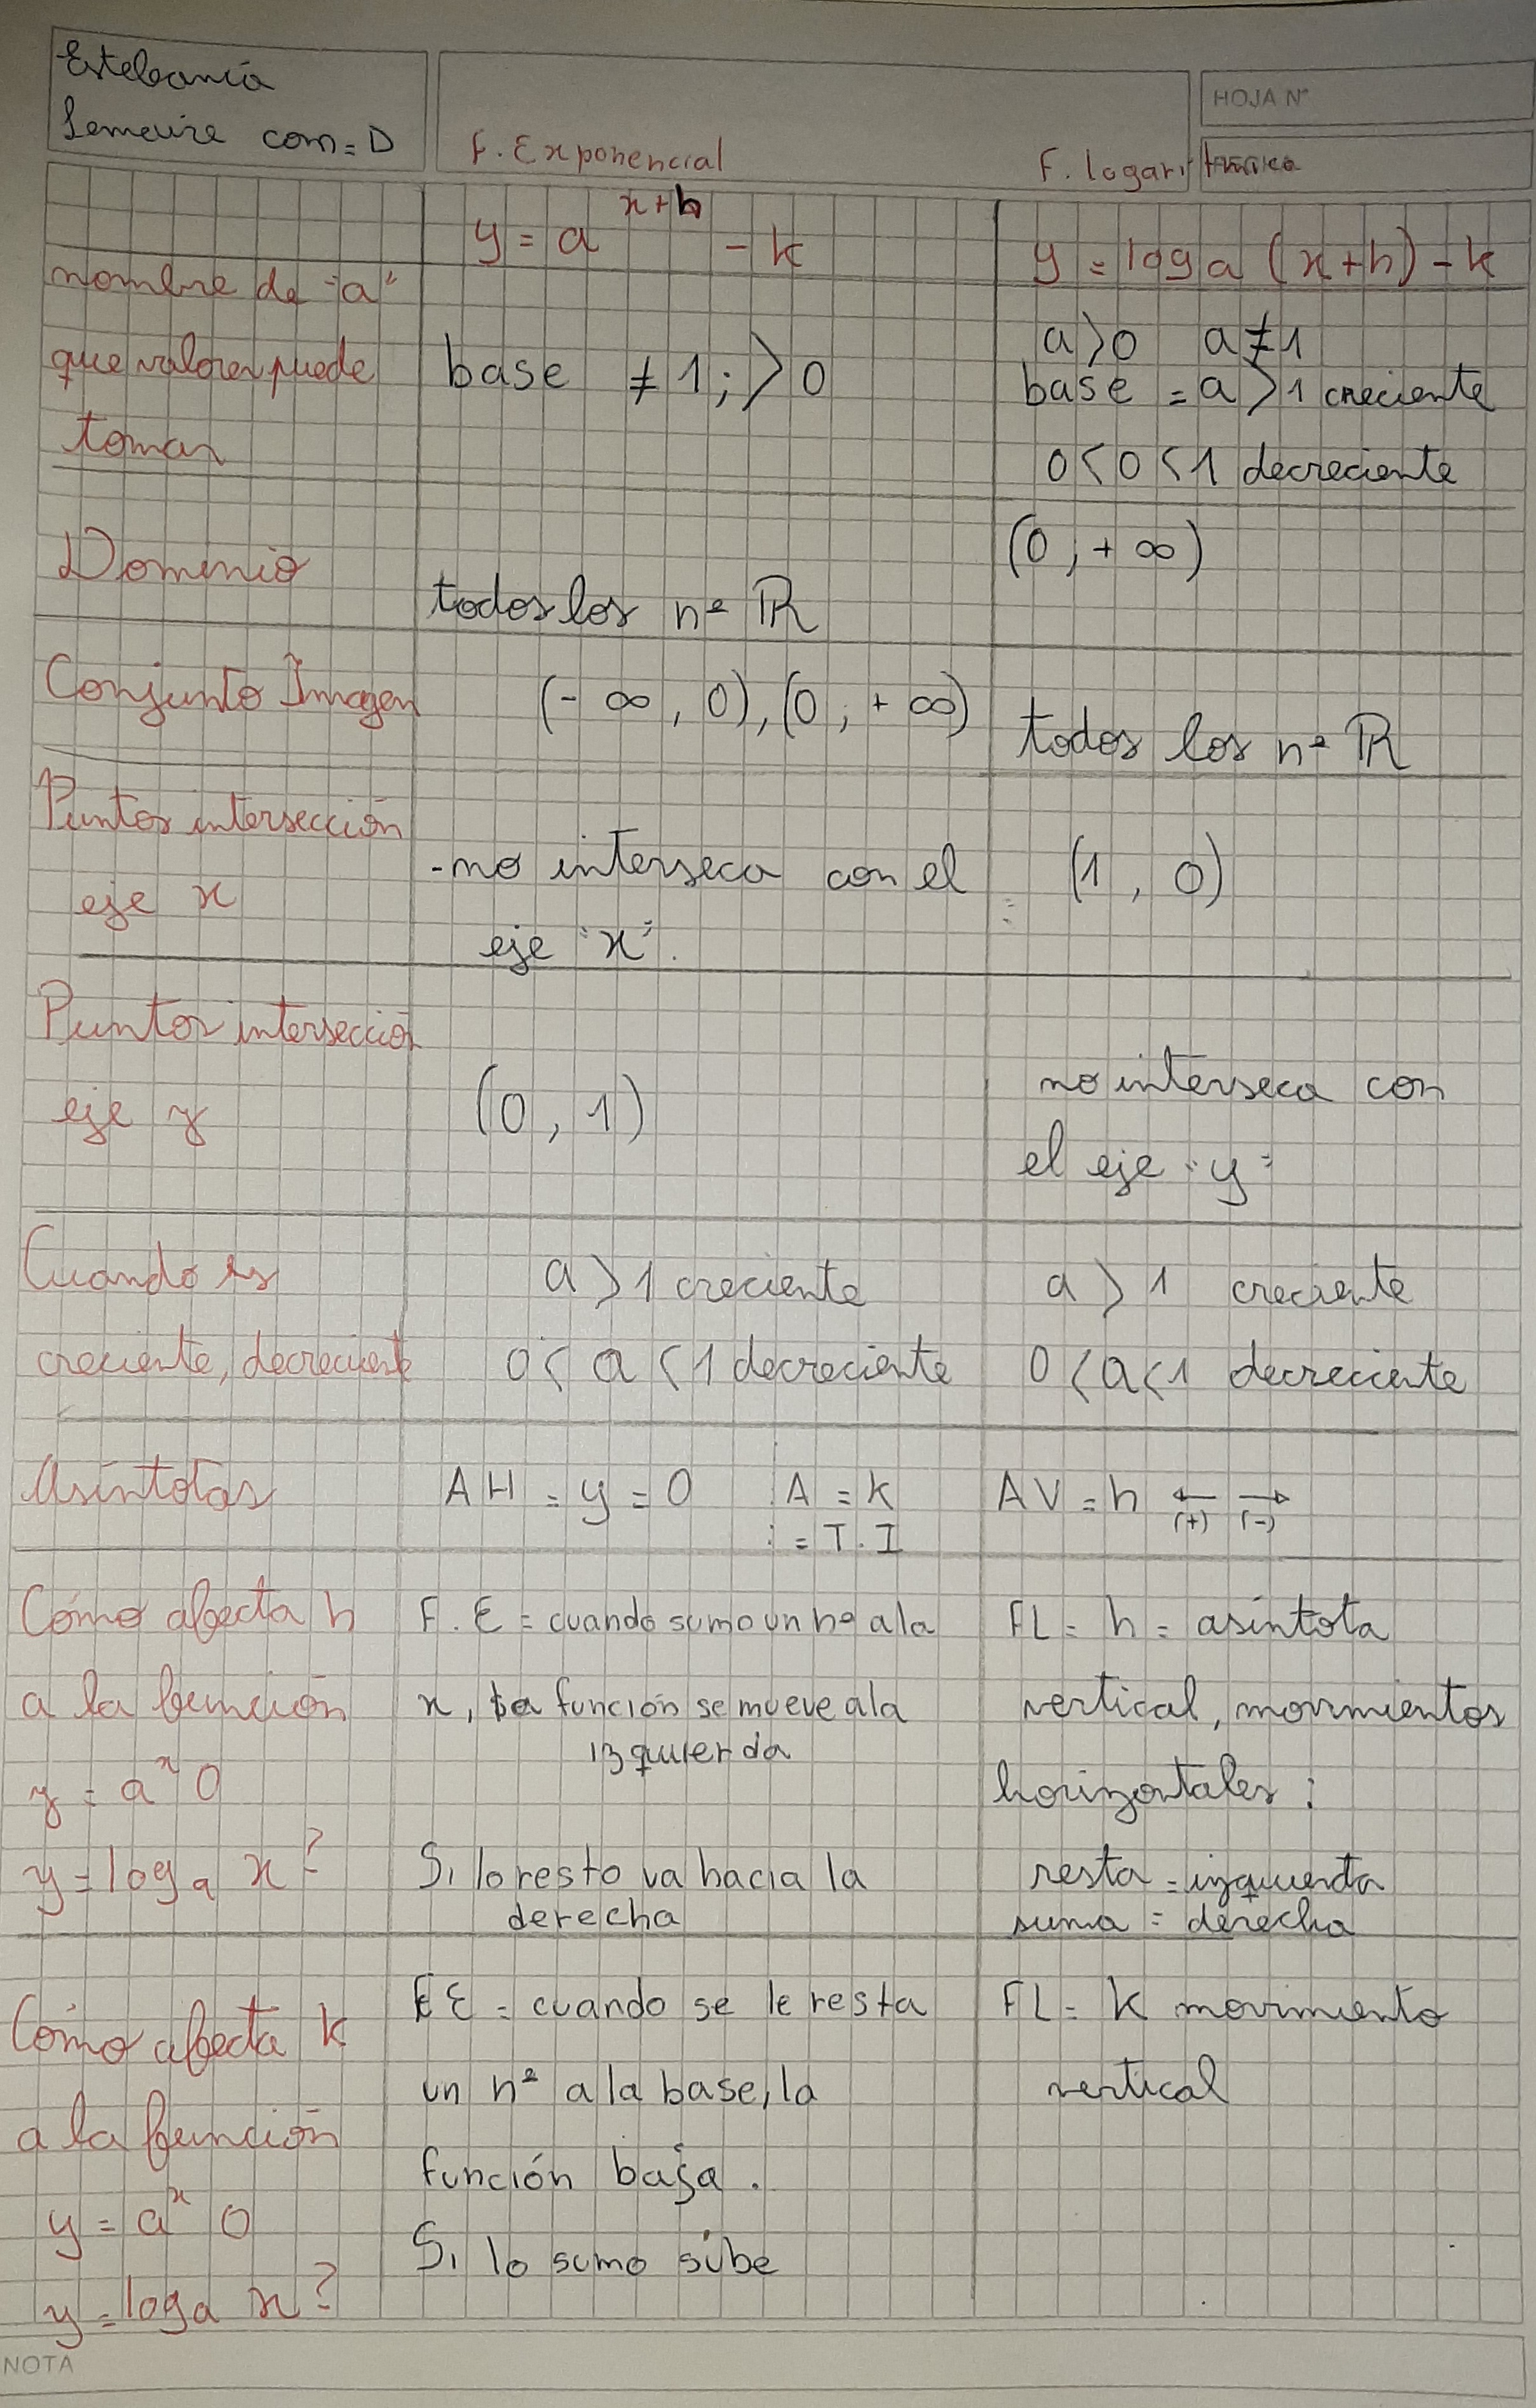 Estebania
Lemeire com=D
HOJA N°
F. Exponencial
F. logaritmica
y = a^(x+h) - k
y = log a (x+h) - k
nombre de "a"
que valores puede
tomar
base ≠ 1; > 0
a > 0 a ≠ 1
base = a > 1 creciente
0 < 0 < 1 decreciente
Dominio
todos los nº ℝ
(0 ; + ∞)
Conjunto Imagen
(- ∞, 0), (0 ; + ∞)
todos los nº ℝ
Puntos intersección
eje x
-no interseca con el
eje "x".
(1, 0)
Puntos intersección
eje y
(0, 1)
no interseca con
el eje "y"
Cuando es
creciente, decreciente
a > 1 creciente
0 < a < 1 decreciente
a > 1 creciente
0 < a < 1 decreciente
Asíntotas
AH = y = 0
A = k
= T.I
AV = h ← →
(+) (-)
Cómo afecta h
a la función
y = a^x O
y = log a x?
F.E = cuando sumo un nº a la
x, la función se mueve a la
izquierda
Si lo resto va hacia la
derecha
FL = h = asíntota
vertical, movimientos
horizontales:
resta = izquierda
suma = derecha
Cómo afecta k
a la función
y = a^x O
y = log a x?
FE = cuando se le resta
un nº a la base, la
función baja.
Si lo sumo sube
FL = k movimiento
vertical
NOTA